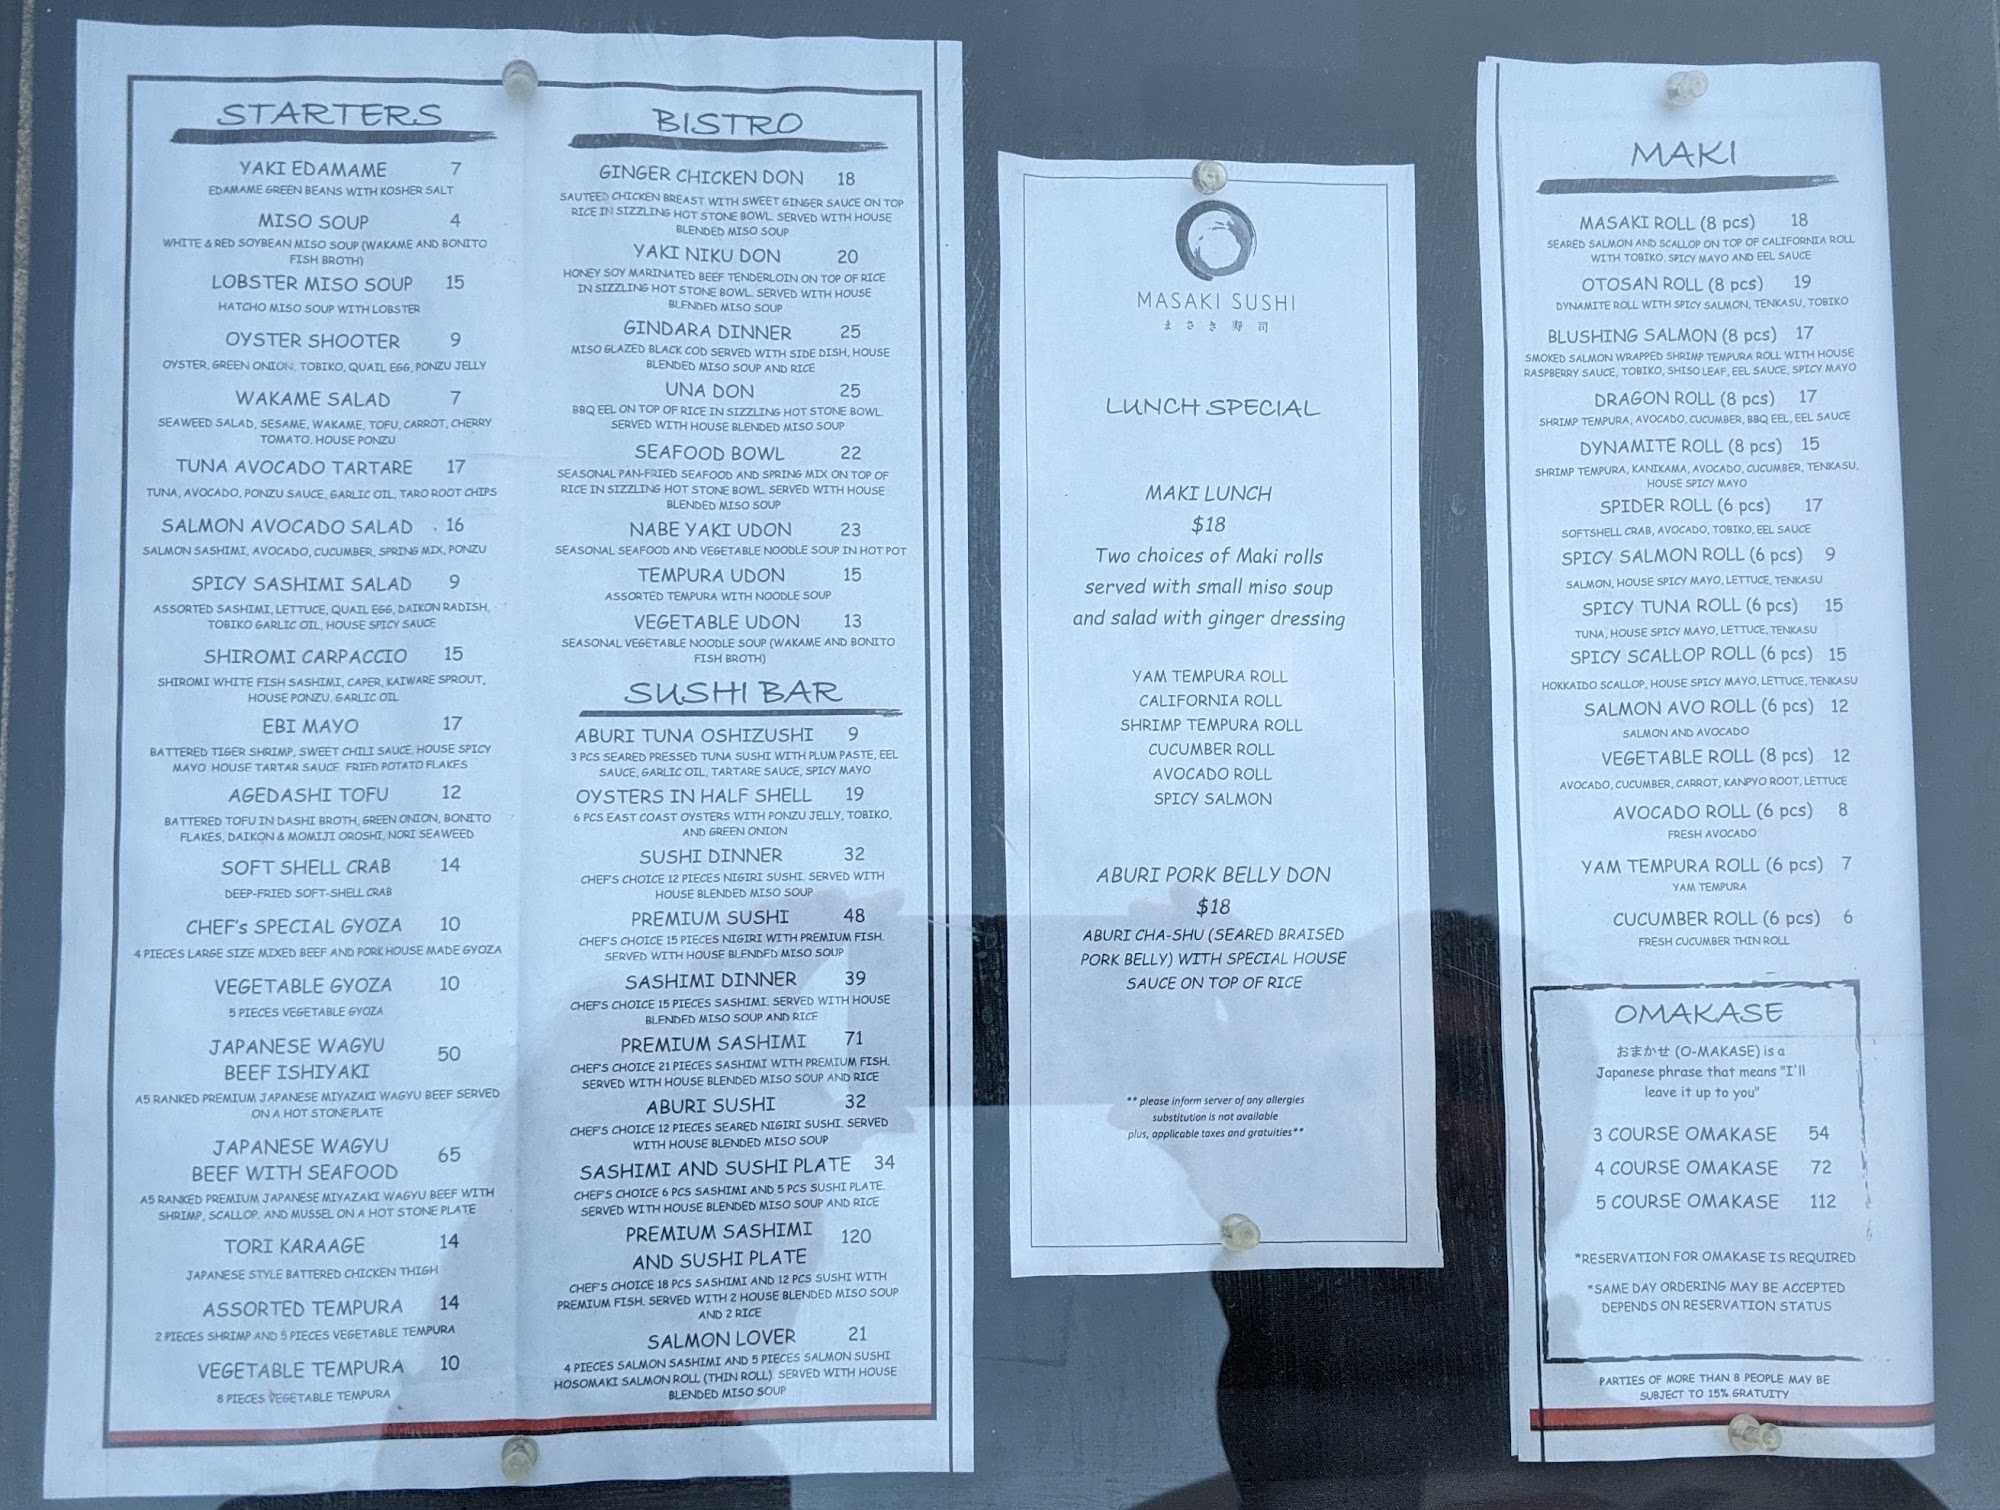 STARTERS
YAKI EDAMAME 7
EDAMAME GREEN BEANS WITH KOSHER SALT
MISO SOUP 4
WHITE & RED SOYBEAN MISO SOUP (WAKAME AND BONITO
FISH BROTH)
LOBSTER MISO SOUP 15
HATCHO MISO SOUP WITH LOBSTER
OYSTER SHOOTER 9
OYSTER, GREEN ONION, TOBIKO, QUAIL EGG, PONZU JELLY
WAKAME SALAD 7
SEAWEED SALAD, SESAME, WAKAME, TOFU, CARROT, CHERRY
TOMATO, HOUSE PONZU
TUNA AVOCADO TARTARE 17
TUNA, AVOCADO, PONZU SAUCE, GARLIC OIL, TARO ROOT CHIPS
SALMON AVOCADO SALAD 16
SALMON SASHIMI, AVOCADO, CUCUMBER, SPRING MIX, PONZU
SPICY SASHIMI SALAD 9
ASSORTED SASHIMI, LETTUCE, QUAIL EGG, DAIKON RADISH,
TOBIKO GARLIC OIL, HOUSE SPICY SAUCE
SHIROMI CARPACCIO 15
SHIROMI WHITE FISH SASHIMI, CAPER, KAIWARE SPROUT,
HOUSE PONZU, GARLIC OIL
EBI MAYO 17
BATTERED TIGER SHRIMP, SWEET CHILI SAUCE, HOUSE SPICY
MAYO HOUSE TARTAR SAUCE FRIED POTATO FLAKES
AGEDASHI TOFU 12
BATTERED TOFU IN DASHI BROTH, GREEN ONION, BONITO
FLAKES, DAIKON & MOMIJI OROSHI, NORI SEAWEED
SOFT SHELL CRAB 14
DEEP-FRIED SOFT-SHELL CRAB
CHEF's SPECIAL GYOZA 10
4 PIECES LARGE SIZE MIXED BEEF AND PORK HOUSE MADE GYOZA
VEGETABLE GYOZA 10
5 PIECES VEGETABLE GYOZA
JAPANESE WAGYU
BEEF ISHIYAKI 50
A5 RANKED PREMIUM JAPANESE MIYAZAKI WAGYU BEEF SERVED
ON A HOT STONE PLATE
JAPANESE WAGYU
BEEF WITH SEAFOOD 65
A5 RANKED PREMIUM JAPANESE MIYAZAKI WAGYU BEEF WITH
SHRIMP, SCALLOP, AND MUSSEL ON A HOT STONE PLATE
TORI KARAAGE 14
JAPANESE STYLE BATTERED CHICKEN THIGH
ASSORTED TEMPURA 14
2 PIECES SHRIMP AND 5 PIECES VEGETABLE TEMPURA
VEGETABLE TEMPURA 10
8 PIECES VEGETABLE TEMPURA
BISTRO
GINGER CHICKEN DON 18
SAUTEED CHICKEN BREAST WITH SWEET GINGER SAUCE ON TOP
RICE IN SIZZLING HOT STONE BOWL. SERVED WITH HOUSE
BLENDED MISO SOUP
YAKI NIKU DON 20
HONEY SOY MARINATED BEEF TENDERLOIN ON TOP OF RICE
IN SIZZLING HOT STONE BOWL. SERVED WITH HOUSE
BLENDED MISO SOUP
GINDARA DINNER 25
MISO GLAZED BLACK COD SERVED WITH SIDE DISH, HOUSE
BLENDED MISO SOUP AND RICE
UNA DON 25
BBQ EEL ON TOP OF RICE IN SIZZLING HOT STONE BOWL.
SERVED WITH HOUSE BLENDED MISO SOUP
SEAFOOD BOWL 22
SEASONAL PAN-FRIED SEAFOOD AND SPRING MIX ON TOP OF
RICE IN SIZZLING HOT STONE BOWL. SERVED WITH HOUSE
BLENDED MISO SOUP
NABE YAKI UDON 23
SEASONAL SEAFOOD AND VEGETABLE NOODLE SOUP IN HOT POT
TEMPURA UDON 15
ASSORTED TEMPURA WITH NOODLE SOUP
VEGETABLE UDON 13
SEASONAL VEGETABLE NOODLE SOUP (WAKAME AND BONITO
FISH BROTH)
SUSHI BAR
ABURI TUNA OSHIZUSHI 9
3 PCS SEARED PRESSED TUNA SUSHI WITH PLUM PASTE, EEL
SAUCE, GARLIC OIL, TARTARE SAUCE, SPICY MAYO
OYSTERS IN HALF SHELL 19
6 PCS EAST COAST OYSTERS WITH PONZU JELLY, TOBIKO,
AND GREEN ONION
SUSHI DINNER 32
CHEF'S CHOICE 12 PIECES NIGIRI SUSHI. SERVED WITH
HOUSE BLENDED MISO SOUP
PREMIUM SUSHI 48
CHEF'S CHOICE 15 PIECES NIGIRI WITH PREMIUM FISH.
SERVED WITH HOUSE BLENDED MISO SOUP
SASHIMI DINNER 39
CHEF'S CHOICE 15 PIECES SASHIMI. SERVED WITH HOUSE
BLENDED MISO SOUP AND RICE
PREMIUM SASHIMI 71
CHEF'S CHOICE 21 PIECES SASHIMI WITH PREMIUM FISH.
SERVED WITH HOUSE BLENDED MISO SOUP AND RICE
ABURI SUSHI 32
CHEF'S CHOICE 12 PIECES SEARED NIGIRI SUSHI. SERVED
WITH HOUSE BLENDED MISO SOUP
SASHIMI AND SUSHI PLATE 34
CHEF'S CHOICE 6 PCS SASHIMI AND 5 PCS SUSHI PLATE.
SERVED WITH HOUSE BLENDED MISO SOUP AND RICE
PREMIUM SASHIMI
AND SUSHI PLATE 120
CHEF'S CHOICE 18 PCS SASHIMI AND 12 PCS SUSHI WITH
PREMIUM FISH. SERVED WITH 2 HOUSE BLENDED MISO SOUP
AND 2 RICE
SALMON LOVER 21
4 PIECES SALMON SASHIMI AND 5 PIECES SALMON SUSHI
HOSOMAKI SALMON ROLL (THIN ROLL). SERVED WITH HOUSE
BLENDED MISO SOUP
MASAKI SUSHI
まさき寿司
LUNCH SPECIAL
MAKI LUNCH
$18
Two choices of Maki rolls
served with small miso soup
and salad with ginger dressing
YAM TEMPURA ROLL
CALIFORNIA ROLL
SHRIMP TEMPURA ROLL
CUCUMBER ROLL
AVOCADO ROLL
SPICY SALMON
ABURI PORK BELLY DON
$18
ABURI CHA-SHU (SEARED BRAISED
PORK BELLY) WITH SPECIAL HOUSE
SAUCE ON TOP OF RICE
** please inform server of any allergies
substitution is not available
plus, applicable taxes and gratuities**
MAKI
MASAKI ROLL (8 pcs) 18
SEARED SALMON AND SCALLOP ON TOP OF CALIFORNIA ROLL
WITH TOBIKO, SPICY MAYO AND EEL SAUCE
OTOSAN ROLL (8 pcs) 19
DYNAMITE ROLL WITH SPICY SALMON, TENKASU, TOBIKO
BLUSHING SALMON (8 pcs) 17
SMOKED SALMON WRAPPED SHRIMP TEMPURA ROLL WITH HOUSE
RASPBERRY SAUCE, TOBIKO, SHISO LEAF, EEL SAUCE, SPICY MAYO
DRAGON ROLL (8 pcs) 17
SHRIMP TEMPURA, AVOCADO, CUCUMBER, BBQ EEL, EEL SAUCE
DYNAMITE ROLL (8 pcs) 15
SHRIMP TEMPURA, KANIKAMA, AVOCADO, CUCUMBER, TENKASU,
HOUSE SPICY MAYO
SPIDER ROLL (6 pcs) 17
SOFTSHELL CRAB, AVOCADO, TOBIKO, EEL SAUCE
SPICY SALMON ROLL (6 pcs) 9
SALMON, HOUSE SPICY MAYO, LETTUCE, TENKASU
SPICY TUNA ROLL (6 pcs) 15
TUNA, HOUSE SPICY MAYO, LETTUCE, TENKASU
SPICY SCALLOP ROLL (6 pcs) 15
HOKKAIDO SCALLOP, HOUSE SPICY MAYO, LETTUCE, TENKASU
SALMON AVO ROLL (6 pcs) 12
SALMON AND AVOCADO
VEGETABLE ROLL (8 pcs) 12
AVOCADO, CUCUMBER, CARROT, KANPYO ROOT, LETTUCE
AVOCADO ROLL (6 pcs) 8
FRESH AVOCADO
YAM TEMPURA ROLL (6 pcs) 7
YAM TEMPURA
CUCUMBER ROLL (6 pcs) 6
FRESH CUCUMBER THIN ROLL
OMAKASE
おまかせ (O-MAKASE) is a
Japanese phrase that means "I'll
leave it up to you"
3 COURSE OMAKASE 54
4 COURSE OMAKASE 72
5 COURSE OMAKASE 112
*RESERVATION FOR OMAKASE IS REQUIRED
*SAME DAY ORDERING MAY BE ACCEPTED
DEPENDS ON RESERVATION STATUS
PARTIES OF MORE THAN 8 PEOPLE MAY BE
SUBJECT TO 15% GRATUITY